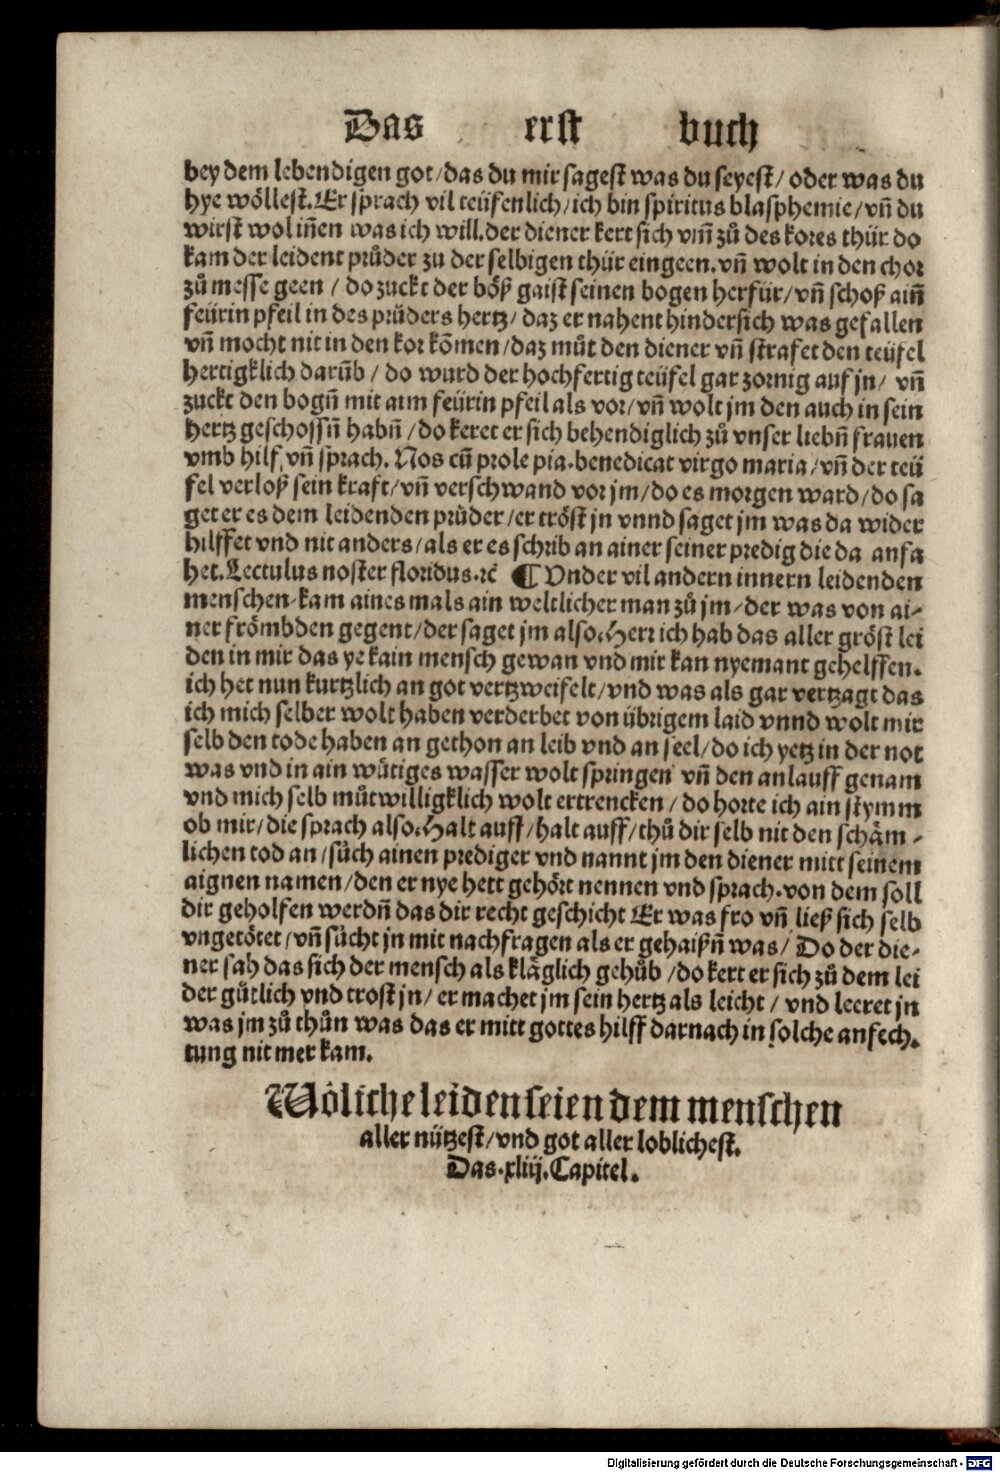 Das erst buch
bey dem lebendigen got/das du mir sagest was du seyest/ oder was du
hye wöllest. Er sprach vil teüfenlich/ich bin spiritus blasphemie/vñ du
wirst wol iñen was ich will. der diener kert sich vm̃ zů des kores thür do
kam der leident průder zu der selbigen thür eingeen. vñ wolt in den chor
zů messe geen / do zuckt der böß gaist seinen bogen herfür/vñ schoß aiñ
feürin pfeil in des průders hertz/ daz er nahent hindersich was gefallen
vñ mocht nit in den kor kõmen/daz můt den diener vñ strafet den teüfel
hertigklich darũb / do wurd der hochfertig teüfel gar zornig auf jn/ vñ
zuckt den bogñ mit aim feürin pfeil als vor/vñ wolt jm den auch in sein
hertz geschossñ habñ/do keret er sich behendiglich zů vnser liebñ frauen
vmb hilf/vñ sprach. Nos cũ prole pia. benedicat virgo maria/vñ der teü
fel verloß sein kraft/vñ verschwand vor jm/do es morgen ward/do sa
get er es dem leidenden průder/er tröst jn vnnd saget jm was da wider
hilffet vnd nit anders/als er es schrib an ainer seiner predig die da anfa
het. Lectulus noster floridus.ꝛc̃ ¶ Vnder vil andern innern leidenden
menschen/kam aines mals ain weltlicher man zů jm/der was von ai-
ner frömbden gegent/der saget jm also. Herr ich hab das aller gröst lei
den in mir das ye kain mensch gewan vnd mir kan nyemant gehelffen.
ich het nun kurtzlich an got vertzweifelt/vnd was als gar vertzagt das
ich mich selber wolt haben verderbet von übrigem laid vnnd wolt mir
selb den tode haben an gethon an leib vnd an seel/do ich yetz in der not
was vnd in ain wůtiges wasser wolt springen vñ den anlauff genam
vnd mich selb můtwilligklich wolt ertrencken / do horte ich ain stymm
ob mir/die sprach also. Halt auff/halt auff/thů dir selb nit den schäm-
lichen tod an/sůch ainen prediger vnd nannt jm den diener mitt seinem
aignen namen/den er nye hett gehört nennen vnd sprach. von dem soll
dir geholfen werdñ das dir recht geschicht Er was fro vñ ließ sich selb
vngetötet/vñ sůcht jn mit nachfragen als er gehaißñ was/ Do der die-
ner sah das sich der mensch als kläglich gehůb/do kert er sich zů dem lei
der gůtlich vnd trost jn/ er machet jm sein hertz als leicht / vnd leeret jn
was jm zů thůn was das er mitt gottes hilff darnach in solche anfech-
tung nit mer kam.
Wöliche leiden seien dem menschen
aller nützest/vnd got aller loblichest.
Das.xliij.Capitel.
Digitalisierung gefördert durch die Deutsche Forschungsgemeinschaft - DFG